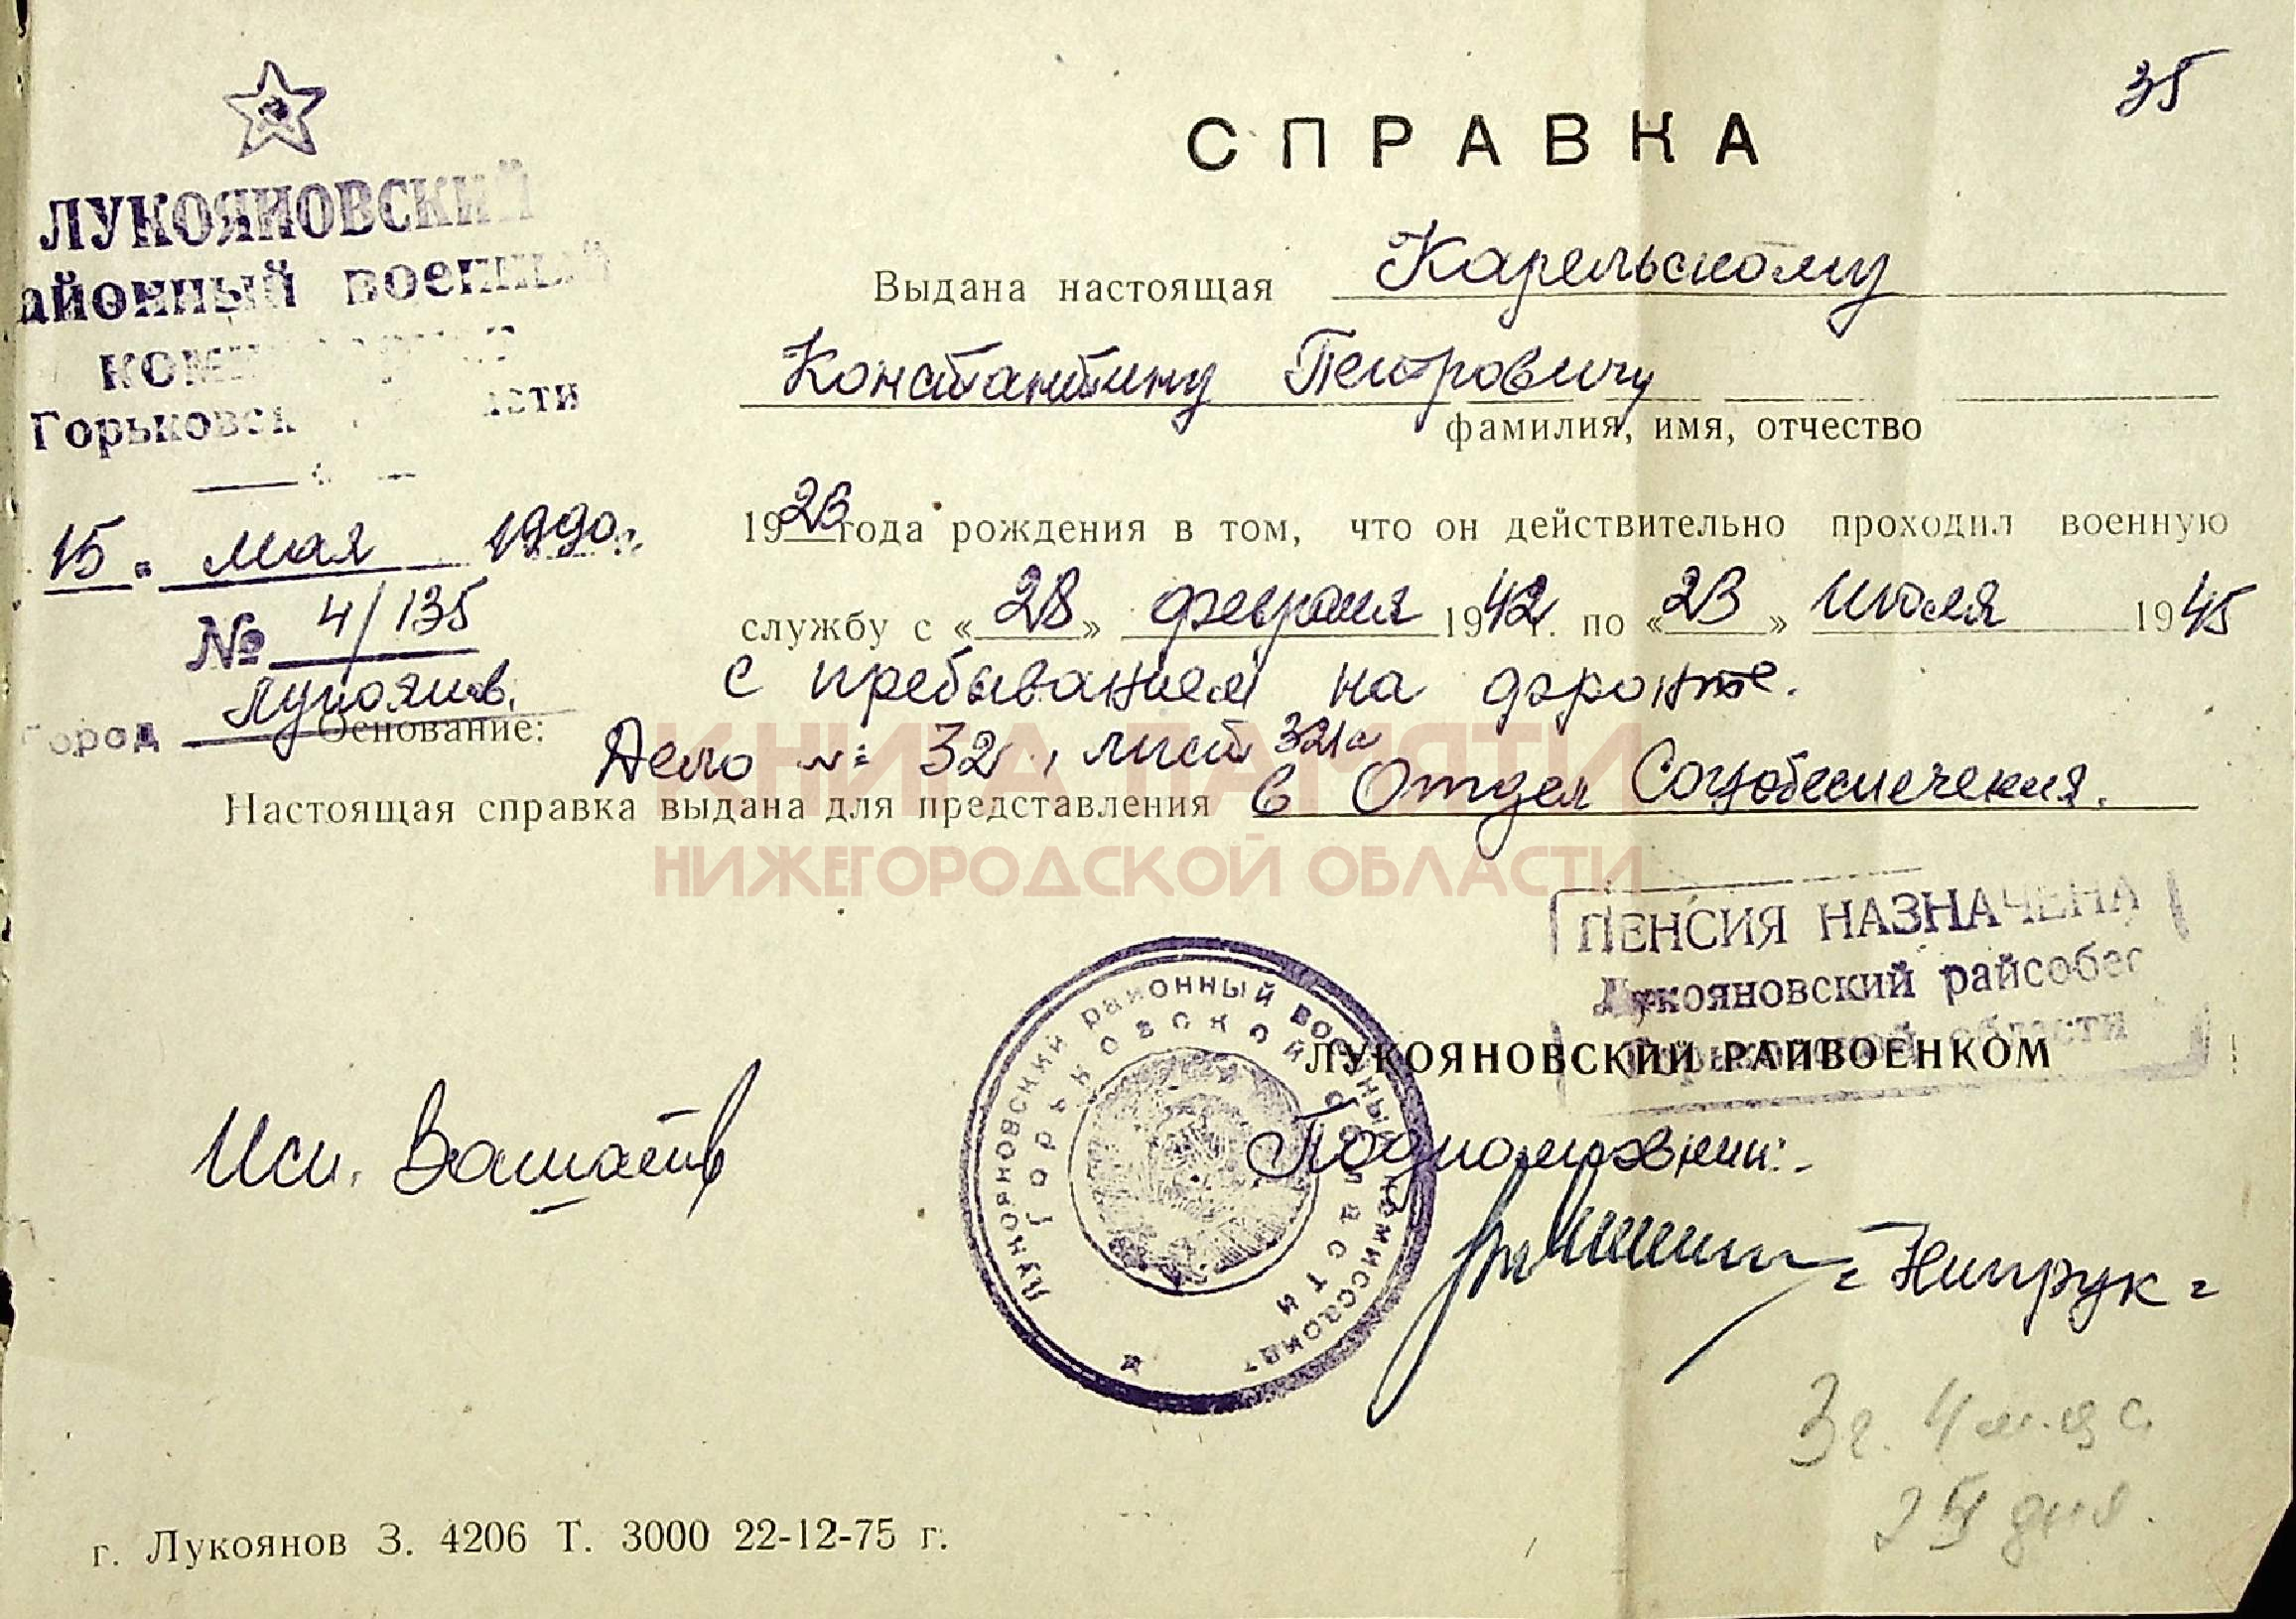 35
СПРАВКА
ЛУКОЯНОВСКИЙ
айонный военный
Горьковск сти
15 " мая 1990 г.
№ 4/135
город Лукоянов.
Выдана настоящая Карельскому
Константину Петровичу
фамилия, имя, отчество
1923 года рождения в том, что он действительно проходил военную
службу с «28» февраля 1942 г. по «23» июля 1945
с пребыванием на фронте.
Основание: Дело №: 32, лист 321а
Настоящая справка выдана для представления в Отдел Соцобеспечения.
КНИГА ПАМЯТИ
НИЖЕГОРОДСКОЙ ОБЛАСТИ
ПЕНСИЯ НАЗНАЧЕНА
Лукояновский райсобес
Горьковской области
ЛУКОЯНОВСКИЙ РАЙВОЕНКОМ
Лукояновский районный военный комиссариат
Горьковской области
Подполковник:
Исп.
г. Лукоянов З. 4206 Т. 3000 22-12-75 г.
3 г. 4 м-ца